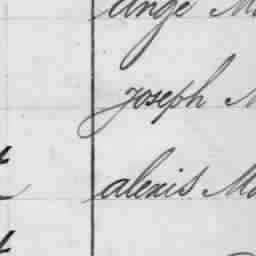 ange M
joseph M
alexis Ma